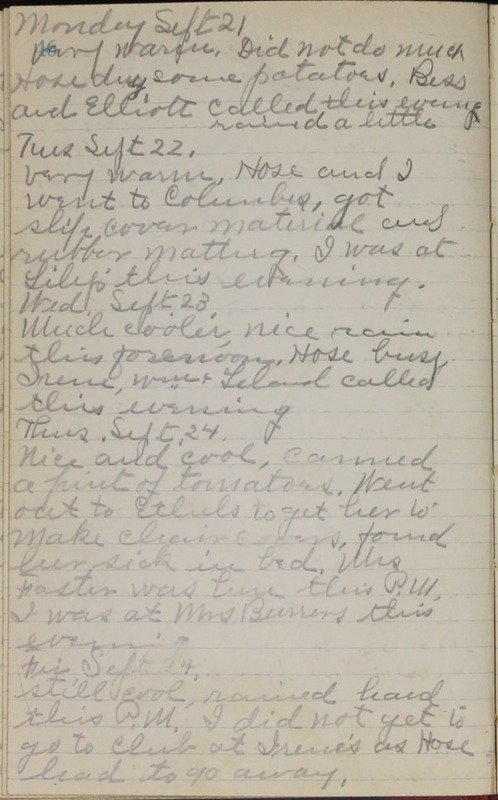 Monday Sept 21
Very warm. Did not do much
Hose dug some potatoes. Bess
and Elliott called this evening
rained a little
Tues Sept 22.
Very warm, Hose and I
went to Columbus, got
slip cover material and
rubber matting. I was at
this evening.
Wed. Sept 23
Much cooler, nice rain
this forenoon. Hose busy,
Irene, Wm + Leland called
this evening
Thus. Sept. 24.
Nice and cool, canned
a pint of tomatoes. Went
out to Ethels to get her to
make chair covers, found
her sick in bed. Mrs
Foster was here this P.M.
I was at Mrs Burrers this
evening
Fri Sept 24.
still cool, rained hard
this P.M. I did not get to
go to club at Irene's as Hose
had to go away.